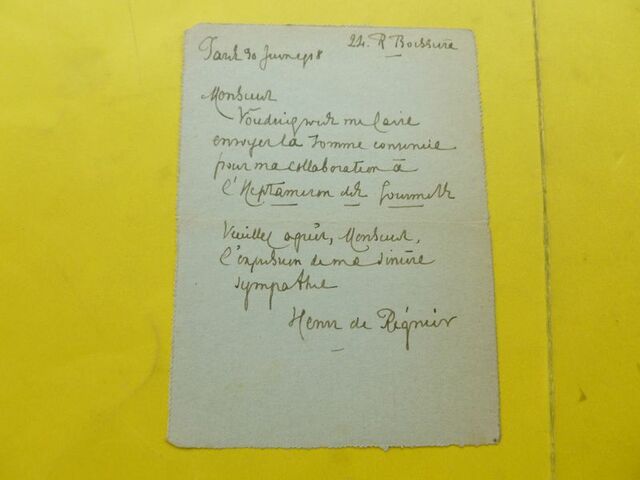 24. R Boissière
Paris 30 Janv 1918
Monsieur
Voudriez vous me faire
envoyer la somme convenue
pour ma collaboration à
l'Heptaméron des Gourmets
Veuillez agréer, Monsieur,
l'expression de ma sincère
sympathie
Henri de Régnier